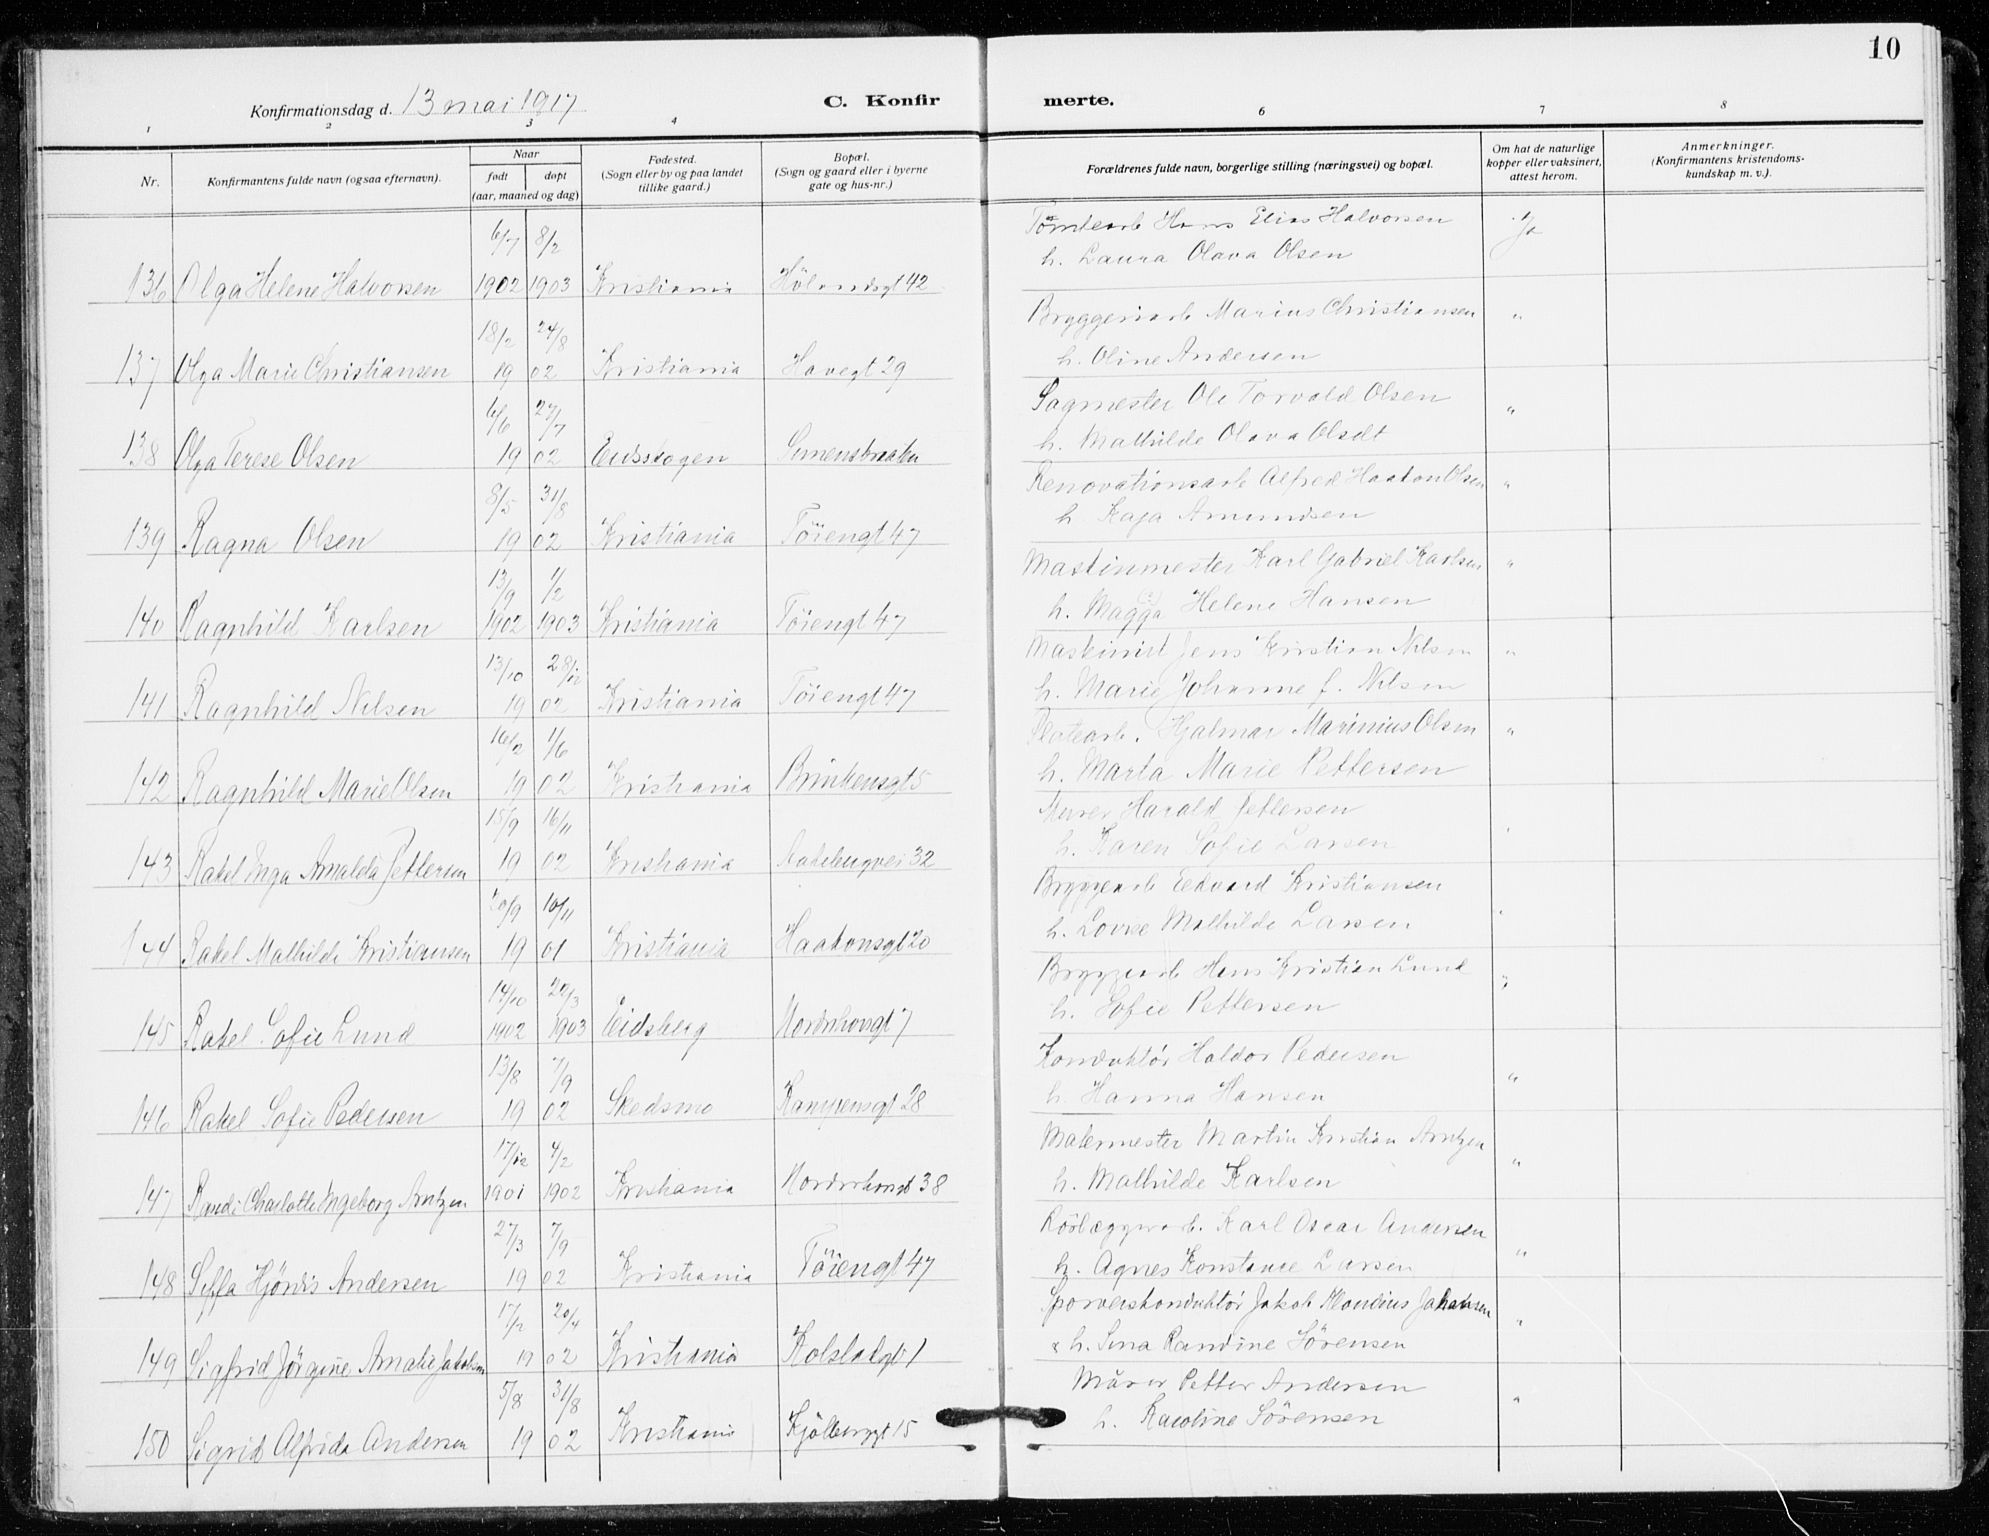 10
Konfirmationsdag d. 13 mai 1917
C. Konfir merte.
1 2 3 4 6 7 8
Nr.
Konfirmantens fulde navn (ogsaa efternavn).
Naar
født døpt
(aar, maaned og dag)
Fødested.
(Sogn eller by og paa landet
tillike gaard.)
Bopæl.
(Sogn og gaard eller i byerne
gate og hus-nr.)
Forældrenes fulde navn, borgerlige stilling (næringsvei) og bopæl.
Om hat de naturlige
kopper eller vaksinert,
attest herom.
Anmerkninger.
(Konfirmantens kristendoms-
kundskap m. v.).
6/7 8/2 Tomtearb Hans Elias Halvorsen Ja
h. Laura Olava Olsen
136 Olga Helene Halvorsen 1902 1903 Kristiania Hölandsgt 42
18/2 24/8 Bryggeriarb Marius Christiansen "
h. Oline Andersen
137 Olga Marie Christiansen 19 02 Kristiania Havegt 29
6/6 27/7 Sagmester Ole Torvald Olsen "
h. Mathilde Olava Olsdt
138 Olga Terese Olsen 19 02 Eidsskogen Simensbraaten
8/5 31/8 Renovationsarb Alfred Haakon Olsen "
h. Kaja Amundsen
139 Ragna Olsen 19 02 Kristiania Töiengt 47
13/9 1/2 Maskinmester Karl Gabriel Karlsen "
h. Magga Helene Hansen
140 Ragnhild Karlsen 1902 1903 Kristiania Töiengt 47
13/10 28/12 Maskinist Jens Kristian Nilsen "
h. Marie Johanne f. Nilsen
141 Ragnhild Nilsen 19 02 Kristiania Töiengt 47
16/2 1/6 Platearb. Hjalmar Marinius Olsen "
h. Marta Marie Pettersen
142 Ragnhild Marie Olsen 19 02 Kristiania Brinkensgt 5
15/9 16/11 Murer Harald Pettersen "
h. Karen Sofie Larsen
143 Rakel Inga Amalda Pettersen 19 02 Kristiania Aakebergvei 32
20/9 10/11 Bryggearb Edvard Kristiansen "
h. Lovise Mathilde Larsen
144 Rakel Mathilde Kristiansen 19 01 Kristiania Haakonsgt 20
14/10 29/3 Bryggearb Hans Kristian Lund "
h. Sofie Pettersen
145 Rakel Sofie Lund 1902 1903 Eidsberg Nordrhovgt 7
13/8 7/9 Konduktör Haldor Pedersen "
h. Hanna Hansen
146 Rakel Sofie Pedersen 19 02 Skedsmo Kampensgt 28
17/12 4/2 Malermester Martin Kristian Arntzen "
h. Mathilde Karlsen
147 Randi Charlotte Ingeborg Arntzen 1901 1902 Kristiania Nordrehovgt 38
27/3 7/9 Rörlæggerarb. Karl Oscar Andersen "
h. Agnes Konstance Larsen
148 Siffa Hjördis Andersen 19 02 Kristiania Töiengt 47
17/2 20/4 Sporveiskonduktör Jakob Klaudius Jakobsen "
h. Sina Randine Sörensen
149 Sigfrid Jörgine Amalie Jakobsen 19 02 Kristiania Kolstadgt 1
5/8 31/8 Mürer Petter Andersen "
h. Karoline Sörensen
150 Sigrid Alfrida Andersen 19 02 Kristiania Kjölberggt 15